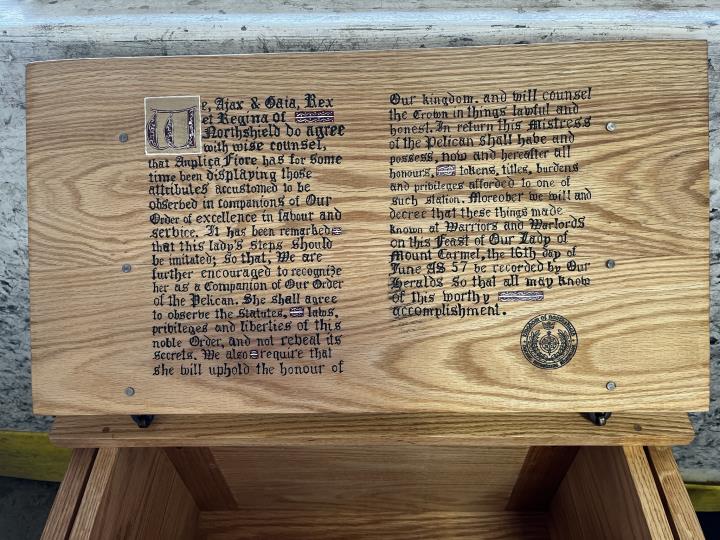 We, Ajax & Gaia, Rex
et Regina of
Northshield do agree
with wise counsel,
that Anplica Fiore has for some
time been displaying those
attributes accustomed to be
observed in companions of Our
Order of excellence in labour and
service. It has been remarked
that this lady's steps should
be imitated; so that, We are
further encouraged to recognize
her as a Companion of Our Order
of the Pelican. She shall agree
to observe the statutes, laws,
privileges and liberties of this
noble Order, and not reveal its
secrets. We also require that
she will uphold the honour of
Our kingdom. and will counsel
the Crown in things lawful and
honest. In return this Mistress
of the Pelican shall have and
possess, now and hereafter all
honours, tokens, titles, burdens
and privileges afforded to one of
such station. Moreover we will and
decree that these things made
known at Warriors and Warlords
on this Feast of Our Lady of
Mount Carmel, the 16th day of
June AS 57 be recorded by Our
Heralds So that all may know
of this worthy
accomplishment.